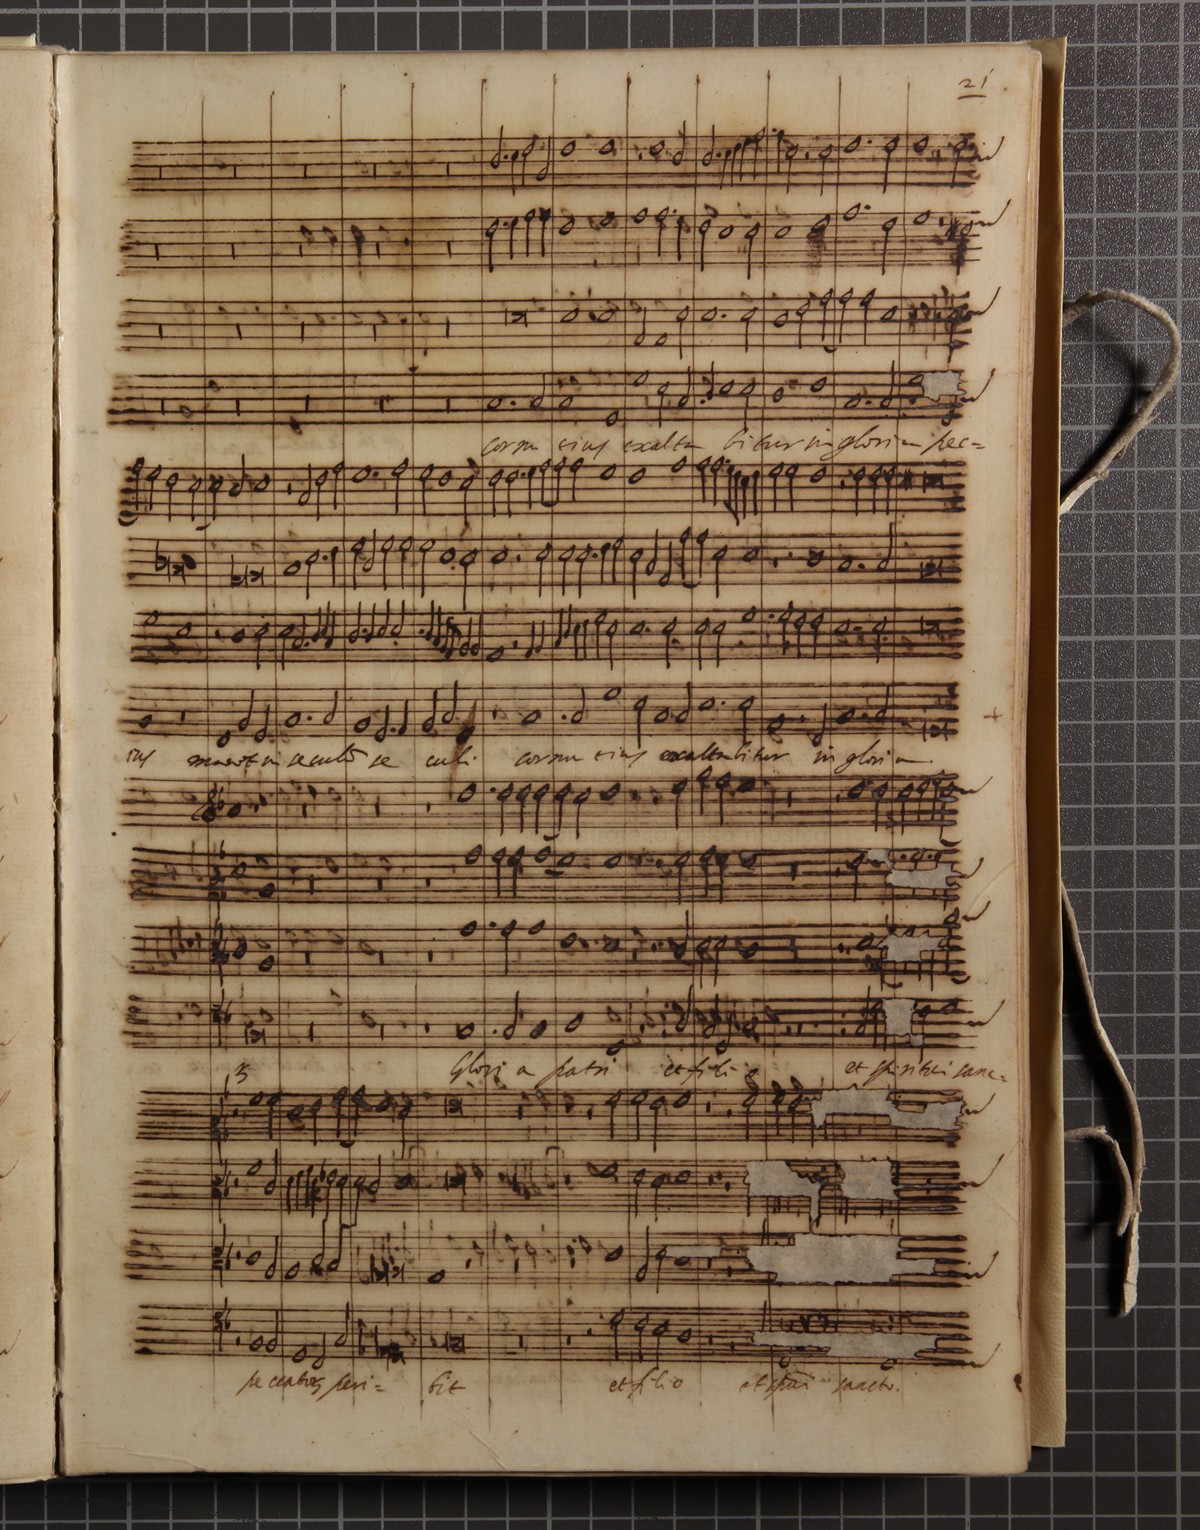 21
cornu eius exalta bitur in gloria pec=
ius manet in seculū se culi cornu eius exaltabitur in gloria.
Glori a patri et fili o et spiritui sanc=
5
peccatorū peri= bit et filio et spūi sancto.